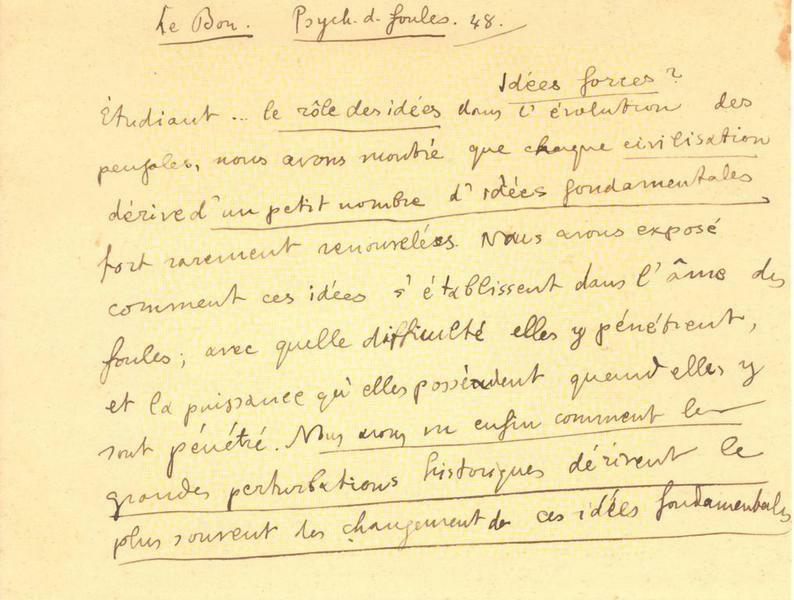 Le Bon. Psych. d. foules. 48.
Idées forces ?
Étudiant ... le rôle des idées dans l'évolution des
peuples, nous avons montré que chaque civilisation
dérive d'un petit nombre d'idées fondamentales
fort rarement renouvelées. Nous avons exposé
comment ces idées s'établissent dans l'âme des
foules ; avec quelle difficulté elles y pénètrent,
et la puissance qu'elles possèdent quand elles y
sont pénétré. Nous avons vu enfin comment les
grandes perturbations historiques dérivent le
plus souvent des changement de ces idées fondamentales